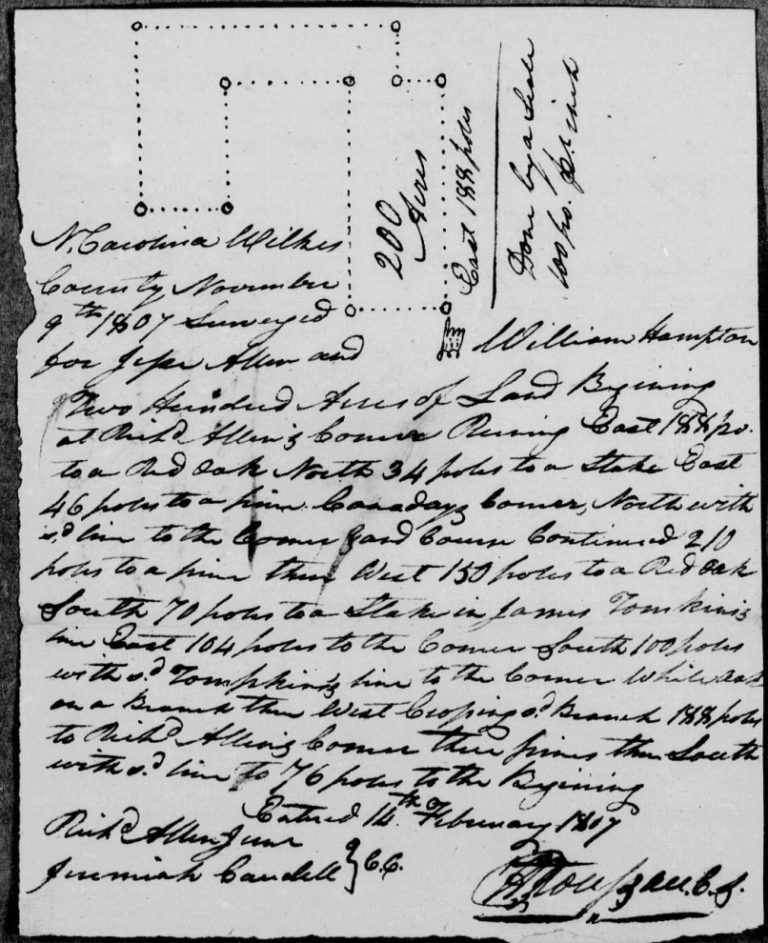 200
Acres
East 188 poles
Done by a Scale
100 po. pr inch
N. Carolina Wilkes
County November
9th 1807 Surveyed
for Jesse Allen and
William Hampton
Two Hundred Acres of Land Begining
at Richd Allen's Corner Runing East 188 po.
to a Red oak North 34 poles to a Stake East
46 poles to a pine Canaday's Corner, North with
sd line to the Corner and Course Continued 210
poles to a pine then West 150 poles to a Red oak
South 70 poles to a Stake in James Tomkins's
line East 104 poles to the Corner South 100 poles
with sd Tompkins's line to the Corner White oak
on a Branch then West Crossing sd Branch 188 poles
to Richd Allen's Corner three pines then South
with sd line to 76 poles to the Begining
Entred 14th February 1807
Richd Allen Junr
Jeremiah Caudell } C.C.
C.S.